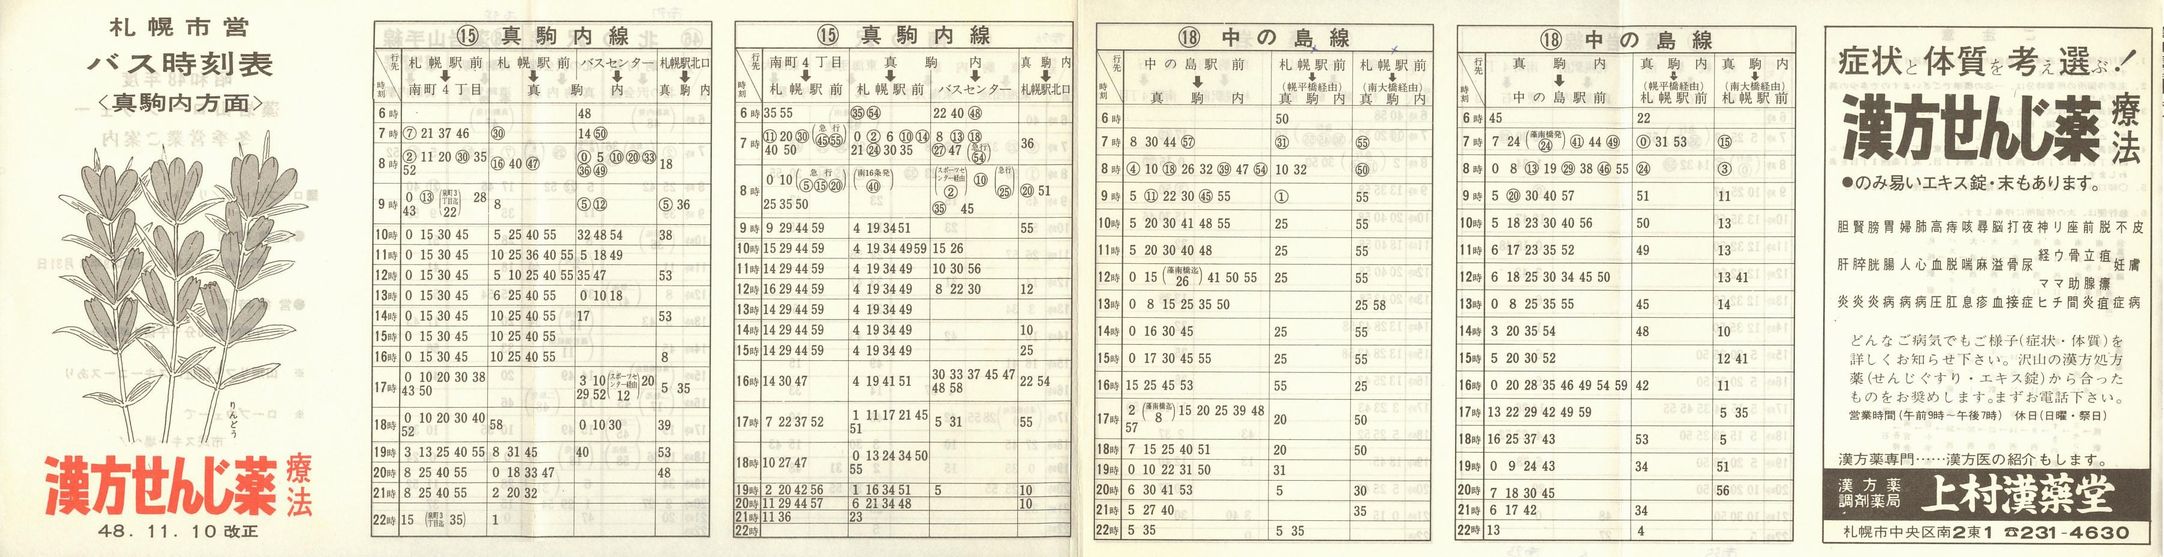 札幌市営
バス時刻表
〈真駒内方面〉
りんどう
漢方せんじ薬 療法
48. 11. 10 改正
⑮ 真駒内線
行先 時刻 札幌駅前→南町4丁目 札幌駅前→真駒内 バスセンター→真駒内 札幌駅北口→真駒内
6時 48
7時 ⑦ 21 37 46 ㉚ 14 ㊿
8時 ② 11 20 ㉚ 35 52 ⑯ 40 ㊼ ⓪ 5 ⑩ ⑳ ㉝ ㊱ ㊾ 18
9時 0 ⑬ (南町3丁目迄 22) 28 43 8 ⑤ ⑫ ⑤ 36
10時 0 15 30 45 5 25 40 55 32 48 54 38
11時 0 15 30 45 10 25 36 40 55 5 18 49
12時 0 15 30 45 5 10 25 40 55 35 47 53
13時 0 15 30 45 6 25 40 55 0 10 18
14時 0 15 30 45 10 25 40 55 17 53
15時 0 15 30 45 10 25 40 55
16時 0 15 30 45 10 25 40 55 8
17時 0 10 20 30 38 43 50 3 10 (スポーツセンター経由 12) 20 29 52 5 35
18時 0 10 20 30 40 52 58 0 10 30 39
19時 3 13 25 40 55 8 31 45 40 53
20時 8 25 40 55 0 18 33 47 48
21時 8 25 40 55 2 20 32
22時 15 (南町3丁目迄 35) 1
⑮ 真駒内線
行先 時刻 南町4丁目→札幌駅前 真駒内→札幌駅前 真駒内→バスセンター 真駒内→札幌駅北口
6時 35 55 ㉟ 54 22 40 ㊽
7時 ⑪ 20 ㉚ (急行 ㊺ 55) 40 50 0 ② 6 ⑩ ⑭ 21 ㉔ 30 35 8 ⑬ ⑱ ㉗ 47 (急行 54) 36
8時 0 10 (急行 ⑤ ⑮ ⑳) 25 35 50 (南16条発 ㊵) (スポーツセンター経由 ②) ⑩ (急行 ㉕) ㉟ 45 ⑳ 51
9時 9 29 44 59 4 19 34 51 55
10時 15 29 44 59 4 19 34 49 59 15 26
11時 14 29 44 59 4 19 34 49 10 30 56
12時 16 29 44 59 4 19 34 49 8 22 30 12
13時 14 29 44 59 4 19 34 49
14時 14 29 44 59 4 19 34 49 10
15時 14 29 44 59 4 19 34 49 25
16時 14 30 47 4 19 41 51 30 33 37 45 47 48 58 22 54
17時 7 22 37 52 1 11 17 21 45 51 5 31 55
18時 10 27 47 0 13 24 34 50 55
19時 2 20 42 56 1 16 34 51 5 10
20時 11 29 44 57 6 21 34 48 10
21時 11 36 23
22時
⑱ 中の島線
行先 時刻 中の島駅前→真駒内 札幌駅前→(幌平橋経由)真駒内 札幌駅前→(南大橋経由)真駒内
6時 50
7時 8 30 44 57 ㉛ 55
8時 ④ 10 ⑱ 26 32 ㊴ 47 54 10 32 ㊿
9時 5 ⑪ 22 30 ㊺ 55 ① 55
10時 5 20 30 41 48 55 25 55
11時 5 20 30 40 48 25 55
12時 0 15 (藻南橋迄 26) 41 50 55 25 55
13時 0 8 15 25 35 50 25 58
14時 0 16 30 45 25 55
15時 0 17 30 45 55 25 55
16時 15 25 45 53 55 25
17時 2 (藻南橋迄 8) 15 20 25 39 48 57 20 50
18時 7 15 25 40 51 20 50
19時 0 10 22 31 50 31
20時 6 30 41 53 5 30
21時 5 27 40 35
22時 5 35 5 35
⑱ 中の島線
行先 時刻 真駒内→中の島駅前 真駒内→(幌平橋経由)札幌駅前 真駒内→(南大橋経由)札幌駅前
6時 45 22
7時 7 24 (藻南橋発 ㉔) ㊶ 44 ㊾ ⓪ 31 53 ⑮
8時 0 8 ⑬ 19 ㉙ 38 ㊻ 55 ㉔ ③
9時 5 ⑳ 30 40 57 51 11
10時 5 18 23 30 40 56 50 13
11時 6 17 23 35 52 49 13
12時 6 18 25 30 34 45 50 13 41
13時 0 8 25 35 55 45 14
14時 3 20 35 54 48 10
15時 5 20 30 52 12 41
16時 0 20 28 35 46 49 54 59 42 11
17時 13 22 29 42 49 59 5 35
18時 16 25 37 43 53 5
19時 0 9 24 43 34 51
20時 7 18 30 45 56
21時 6 17 42 34
22時 13 4
症状と体質を考え選ぶ!
漢方せんじ薬 療法
●のみ易いエキス錠・末もあります。
胆腎膀胃婦肺高痔咳尋脳打夜神リ座前脱不皮
肝膵胱腸人心血脱喘麻溢骨尿経ウ骨立疽妊膚
ママ助腺瘭
炎炎炎病病病圧肛息疹血接症ヒチ間炎疽症病
どんなご病気でもご様子(症状・体質)を
詳しくお知らせ下さい。沢山の漢方処方
薬(せんじぐすり・エキス錠)から合った
ものをお奨めします。まずお電話下さい。
営業時間(午前9時〜午後7時) 休日(日曜・祭日)
漢方薬専門……漢方医の紹介もします。
漢方薬調剤薬局 上村漢薬堂
札幌市中央区南2東1 ☎231-4630